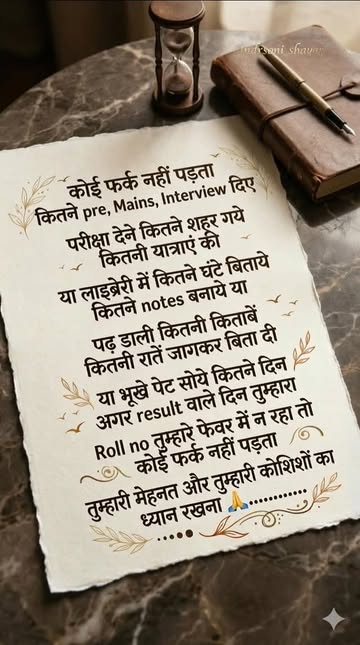 indrsoni_shayar
कोई फर्क नहीं पड़ता
कितने pre, Mains, Interview दिए
परीक्षा देने कितने शहर गये
कितनी यात्राएं की
या लाइब्रेरी में कितने घंटे बिताये
कितने notes बनाये या
पढ़ डाली कितनी किताबें
कितनी रातें जागकर बिता दी
या भूखे पेट सोये कितने दिन
अगर result वाले दिन तुम्हारा
Roll no तुम्हारे फेवर में न रहा तो
कोई फर्क नहीं पड़ता
तुम्हारी मेहनत और तुम्हारी कोशिशों का
ध्यान रखना 🙏............